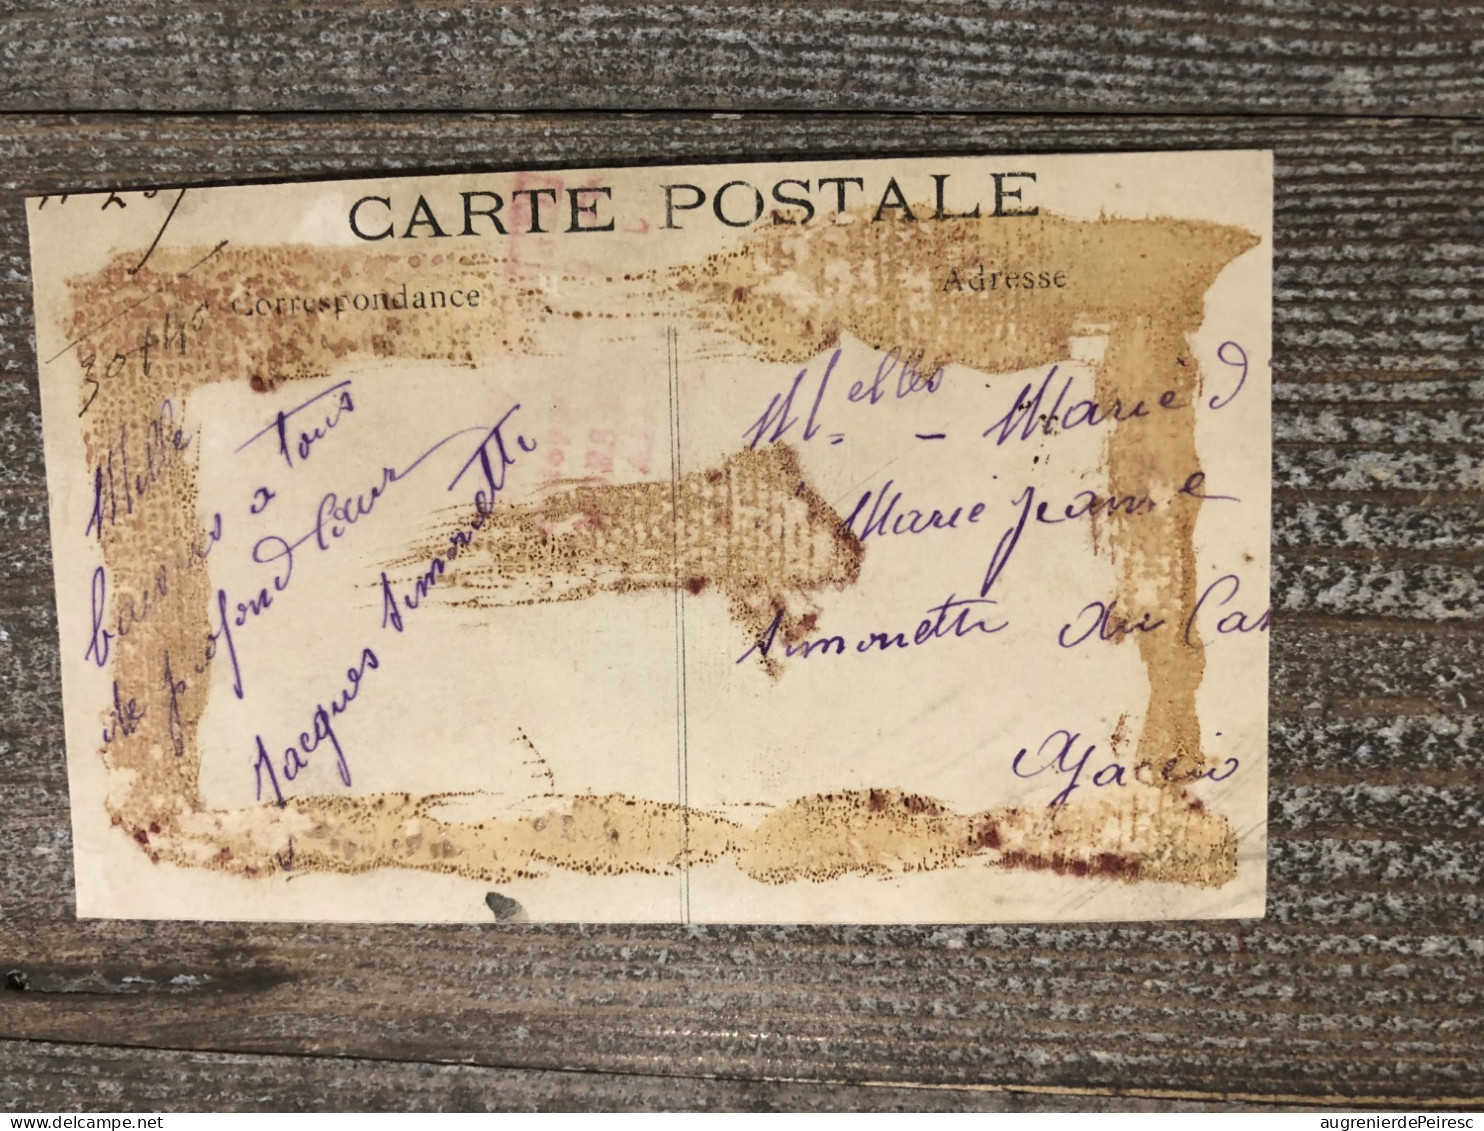 CARTE POSTALE
Correspondance
Adresse
Mille
baisers a tous
de profond Cœur
Jacques Simonetti
Melles - Marie d
Marie Jeanne
Simonetti
Ajaccio
augrenierdePeiresc